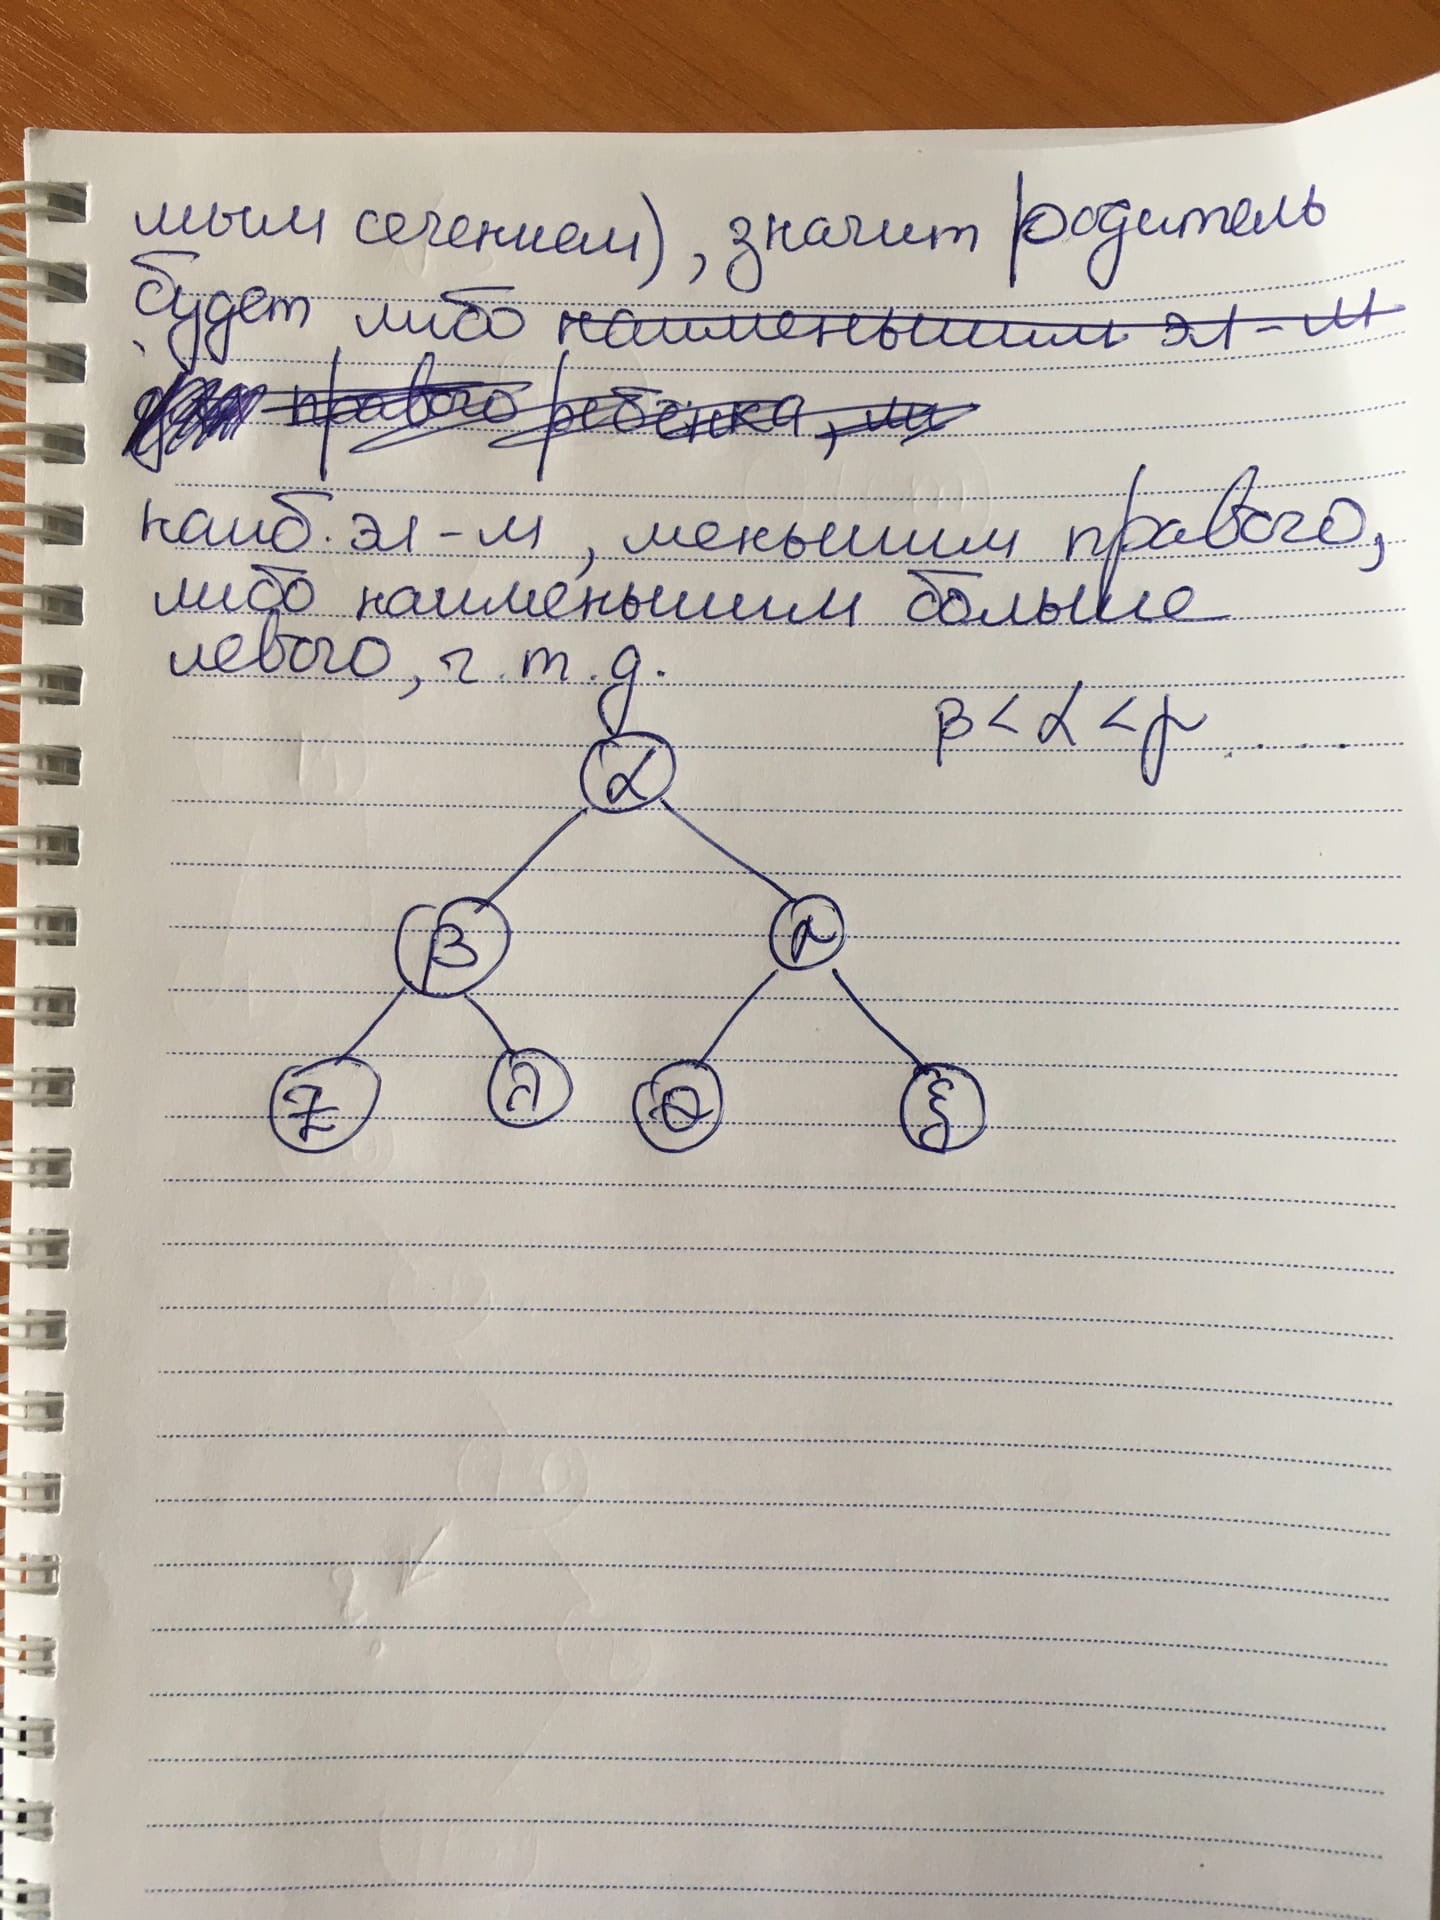 мым сечением), значит родитель
будет либо наименьшим эл-м
правого ребёнка, ли
наиб. эл-м, меньшим правого,
либо наименьшим больше
левого, ч.т.д.
β < α < γ .....
α
β γ
λ θ ξ